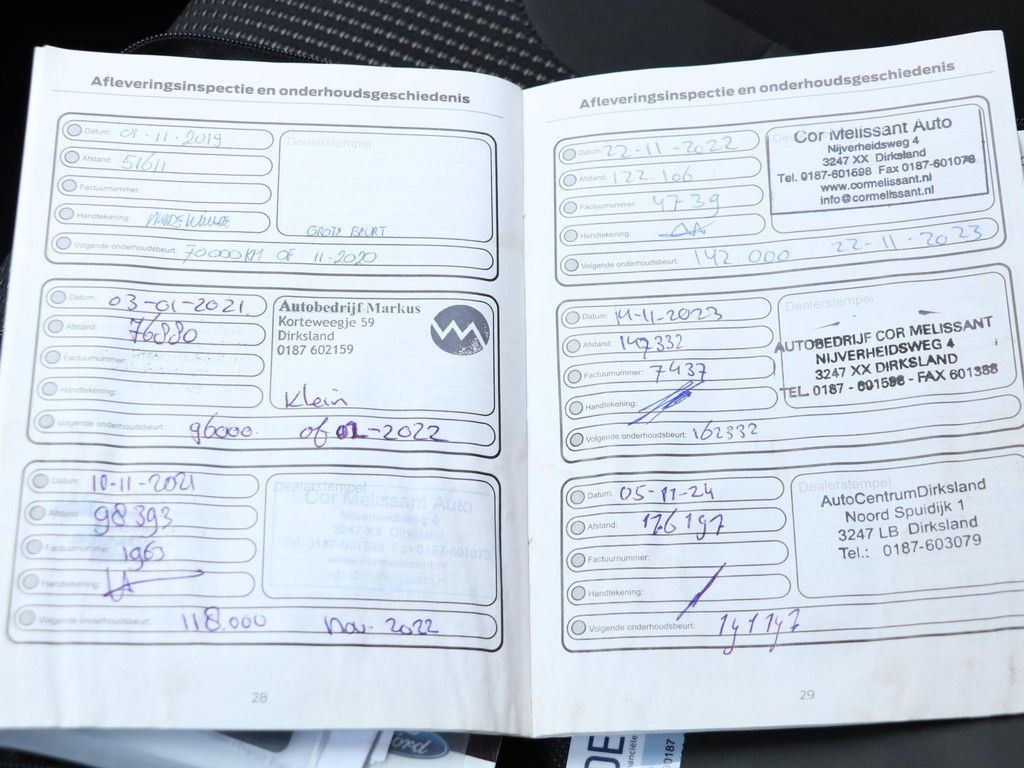 Afleveringsinspectie en onderhoudsgeschiedenis
Datum: 01-11-2019
Dealerstempel
Afstand: 51611
Factuurnummer:
Handtekening:
GROTE BEURT
Volgende onderhoudsbeurt: 70000KM OF 11-2020
Datum: 03-01-2021
Autobedrijf Markus
Korteweegje 59
Dirksland
0187 602159
Afstand: 76880
Factuurnummer:
Handtekening:
Klein
Volgende onderhoudsbeurt: 96000. of 01-2022
Datum: 10-11-2021
Dealerstempel
Cor Melissant Auto
Nijverheidsweg 4
3247 XX Dirksland
Tel. 0187-601598 Fax 0187-601078
www.cormelissant.nl
info@cormelissant.nl
Afstand: 98.393
Factuurnummer: 1963
Handtekening:
Volgende onderhoudsbeurt: 118.000 nov- 2022
28
Afleveringsinspectie en onderhoudsgeschiedenis
Datum: 22-11-2022
Cor Melissant Auto
Nijverheidsweg 4
3247 XX Dirksland
Tel. 0187-601598 Fax 0187-601078
www.cormelissant.nl
info@cormelissant.nl
Afstand: 122.106
Factuurnummer: 4739
Handtekening:
Volgende onderhoudsbeurt: 142 000 22-11-2023
Datum: 14-11-2023
Dealerstempel
AUTOBEDRIJF COR MELISSANT
NIJVERHEIDSWEG 4
3247 XX DIRKSLAND
TEL. 0187 - 601598 - FAX 601388
Afstand: 147332
Factuurnummer: 7437
Handtekening:
Volgende onderhoudsbeurt: 162332
Datum: 05-11-24
Dealerstempel
AutoCentrumDirksland
Noord Spuidijk 1
3247 LB Dirksland
Tel.: 0187-603079
Afstand: 176197
Factuurnummer:
Handtekening:
Volgende onderhoudsbeurt: 191197
29
Ford
0187